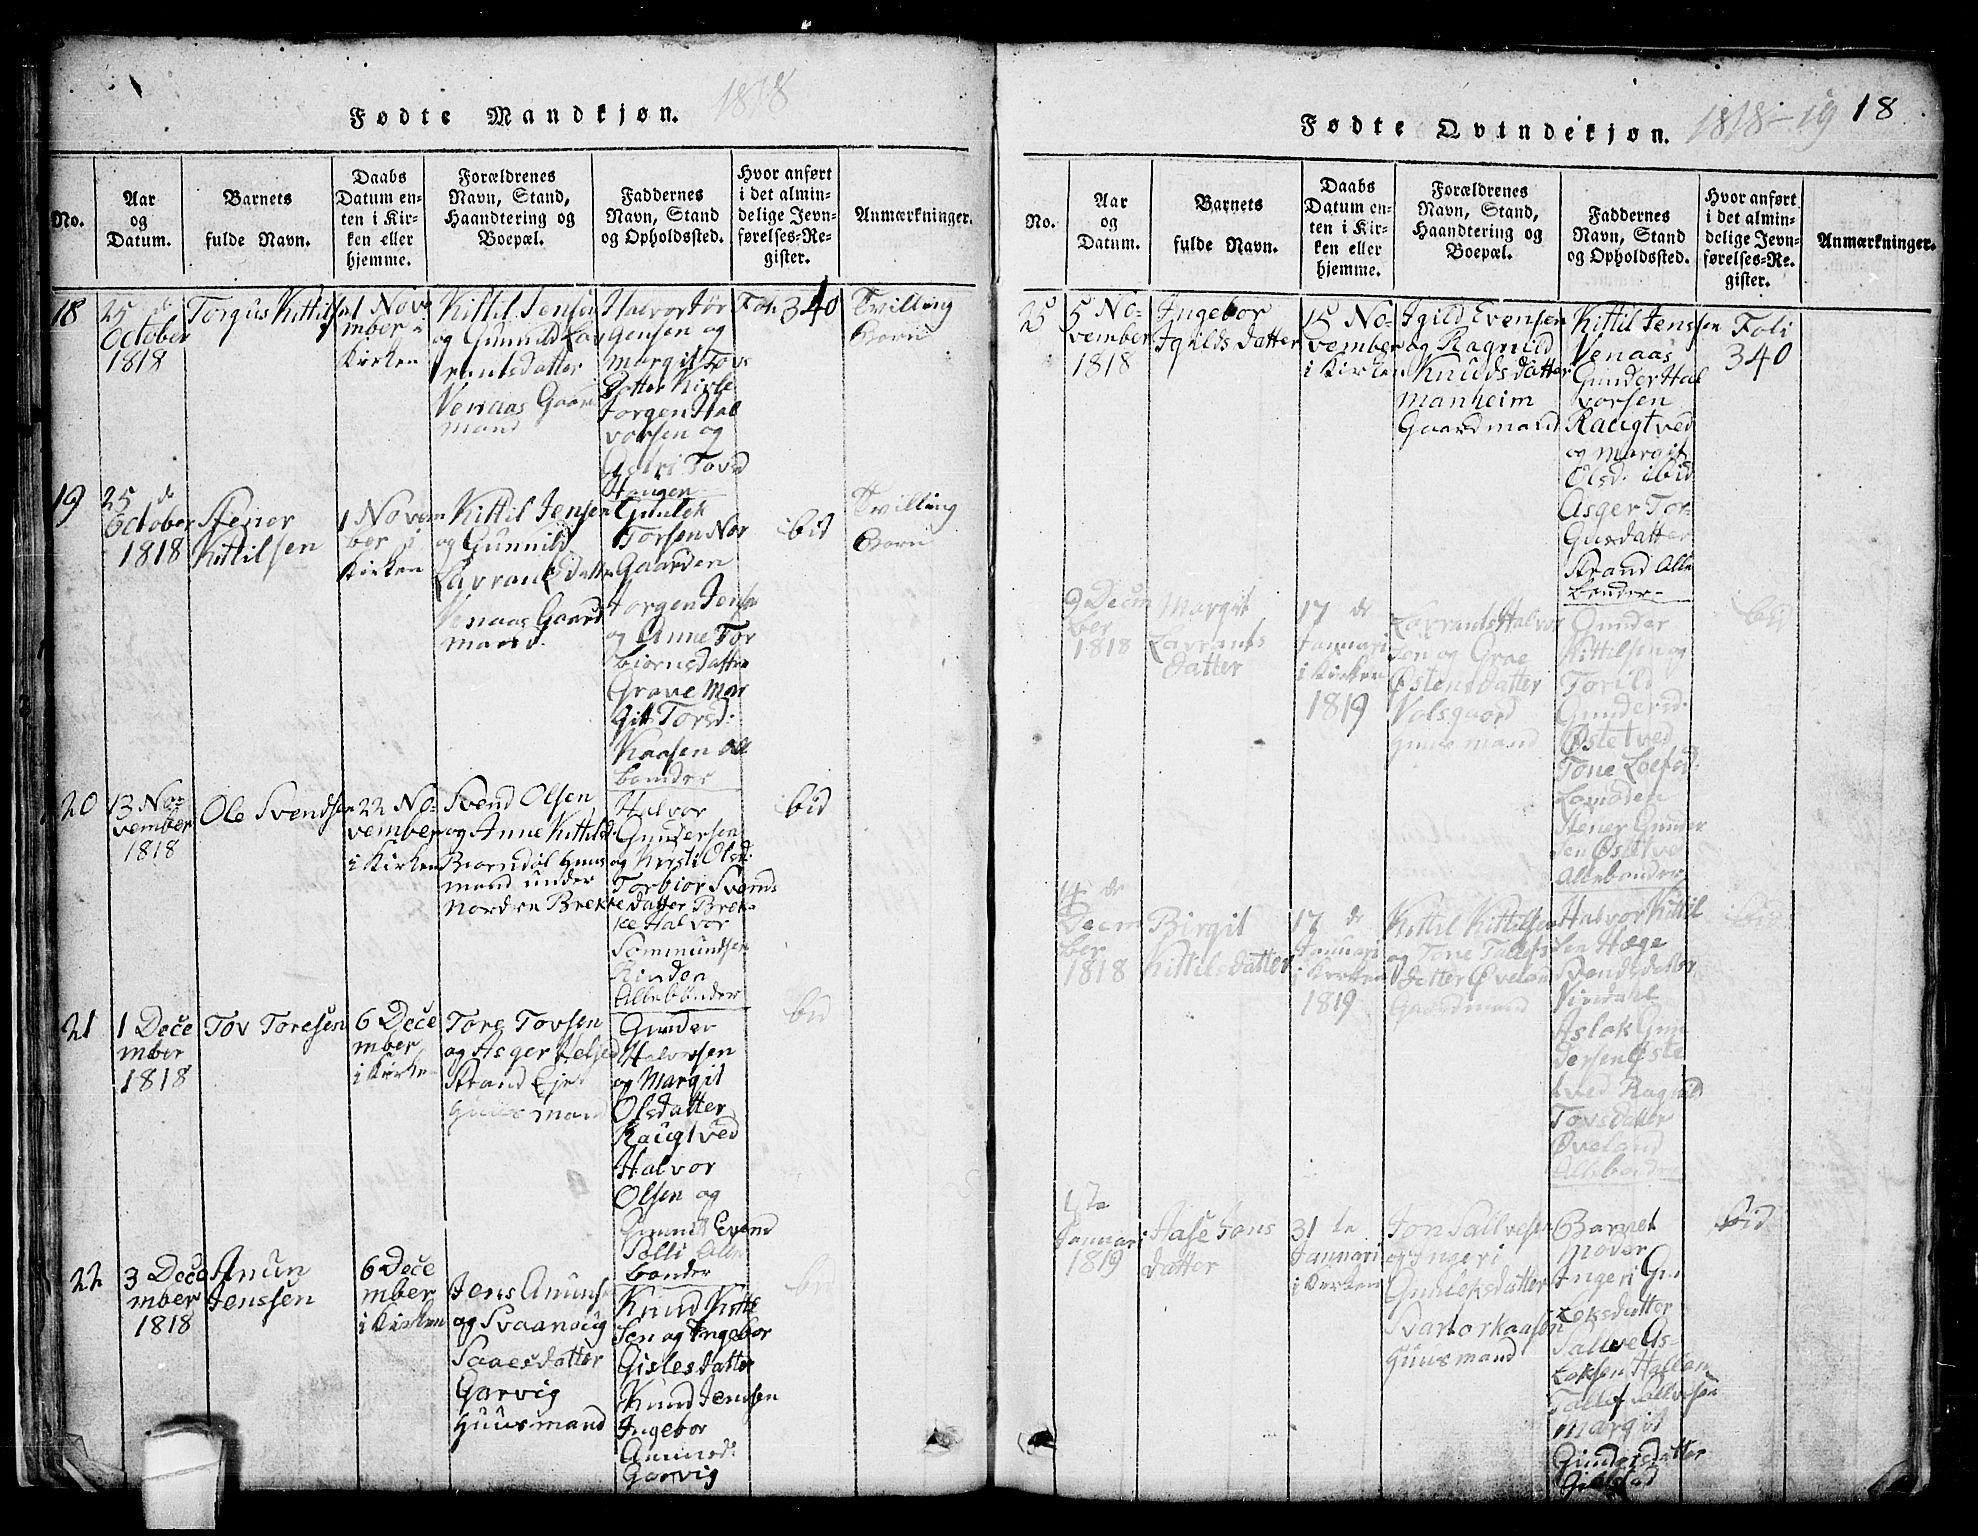 Fødte Mandkjøn.
1818
No.
Aar
og
Datum.
Barnets
fulde Navn.
Daabs
Datum en-
ten i Kir-
ken eller
hjemme.
Forældrenes
Navn, Stand,
Haandtering og
Boepæl.
Faddernes
Navn, Stand
og Opholdssted.
Hvor anført
i det almin-
delige Jevn-
førelses-Re-
gister.
Anmærkninger.
18
25 d
October
1818
Torgus Kittilsen
1 Nov
mber i
Kirken
Kittil Jensen
og Gunnild Lav
rantsdatter
Venaas Gaard
mand
Halvor Jør
gensen og
Margit Tovs
Dotter
Jorgen Hal
vorsen og
Astri Tovsd
Haugen
Fol. 340
Tvilling
Børn
19
25 de
October
1818
Stener
Kittilsen
1 Novem
ber i
Kirken
Kittil Jensen
og Gunnild
Lavrantsdatter
Venaas Gaard
mand.
Gunlek
Torsen Nor
Gaarden
Jorgen Jensen
og Anne Tor
biornsdatter
Grave Mar
git Torsd:
Kaasen Alle
bønder
ibid
Tvilling
Børn
20
13 No-
vember
1818
Ole Svendsen
22 No-
vember
i Kirken
Svend Olsen
og Anne Kittilsd.
Biorndal Huus
mand under
Nordre Brekke
Halvor
Gundersen
og Kirsti Olsd:
Torbior Svend-
sdatter Brek-
ke Halvor
Sommundsen
Rindea
Allebønder
ibid
21
1 Dece
mber
1818
Tov Toresen
6 Dece
mber
i Kirken
Tore Tovsen
og Asger
Strand Eje
Huusmand
Gunder
Halvorsen
og Margit
Olsdatter
Raugtved
Halvor
Olsen og
Gunnild Evend
Bolli Alle
bønder
ibid
22
3 Dece
mber
1818
Anun
Jenssen
6 Dece
mber
i Kirken
Jens Anunds
og Svaanoug
Saaesdatter
Garvig
Huusmand
Knud Kittil
sen og Ingebor
Gislesdatter
Knud Jensen
Ingebor
Annund:
Garvig
Fødte Qvindekjøn.
1818-19
18
No.
Aar
og
Datum.
Barnets
fulde Navn.
Daabs
Datum en-
ten i Kir-
ken eller
hjemme.
Forældrenes
Navn, Stand,
Haandtering og
Boepæl.
Faddernes
Navn, Stand
og Opholdssted.
Hvor anført
i det almin-
delige Jevn-
førelses-Re-
gister.
Anmærkninger.
25
5 No-
vember
1818
Ingebor
Igildsdatter
15 No-
vember
i Kirken
Igild Evensen
og Ragnild
Knudsdatter
Manheim
Gaardmand
Kittil Jenssen
Venaas
Gunder Hal
vorsen
Raugtved
og Margit
Olsd: ibid
Asger Tor-
gusdatter
Strand Alle
bønder-
Foli
340
9 Decm
ber
1818
Margit
Lavrants
datter
17 de
Januari
i Kirken
1819
Lavrants Halvor
sen og Groe
Østensdatter
Valsgaard
Huusmand
Gunder
Kittilsen og
Torild
Gundersd.
Østetved
Tone
Stener Gunder
sen Østetved
Allebønder
ibid
14 de
Decm
ber
1818
Birgit
Kittilsdatter
17 de
Januari
i Kirken
1819
Kittil Kittilsen
og Tone Tallefs
datter Øveland
Gaardmand
Halvor Kittil
sen Hæge
Svendsdatter
Vindahl
Aslak Gun
dersen Øste
tved Ragnil
Tovsdatter
Øveland
Allebønder
ibid
Januari
1819
Aase Jons
datter
31 te
Januari
i Kirken
Jon Sallvesen
og Ingeri
Gunleksdatter
Svartorkaasen
Huusmand
Barnet
Moder
Ingeri Gu
leksdatter
Sallve As-
laksen Hallan
Tallef Sallvesen
Margit
Gundersdatter
ibid